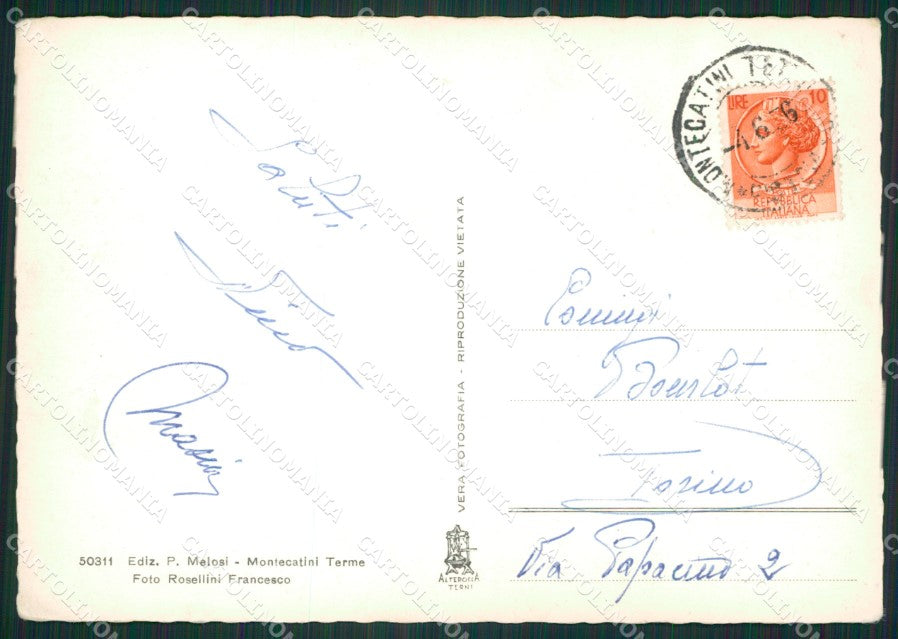 Saluti
50311 Ediz. P. Melosi - Montecatini Terme
Foto Rosellini Francesco
VERA FOTOGRAFIA - RIPRODUZIONE VIETATA
ALTEROCCA
TERNI
LIRE 10
REPUBBLICA
ITALIANA
MONTECATINI TER
-4.6-6
Torino
Via Papacino 2
CARTOLINOMANIA